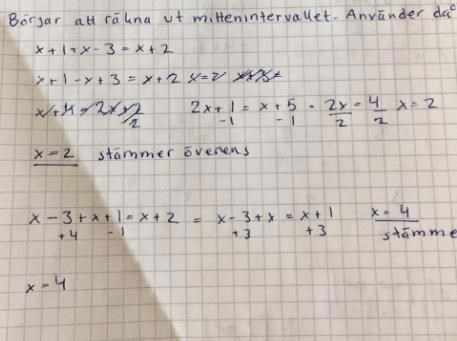 Börjar att räkna ut mittenintervallet. Använder då
x+1+x-3=x+2
x+1-x+3=x+2 x=2
2x+1=x+5 = 2x/2=4/2 x=2
-1 -1
x=2 stämmer överens
x-3+x+1=x+2 = x-3+x=x+1 x=4
+4 -1 +3 +3 stämme
x=4